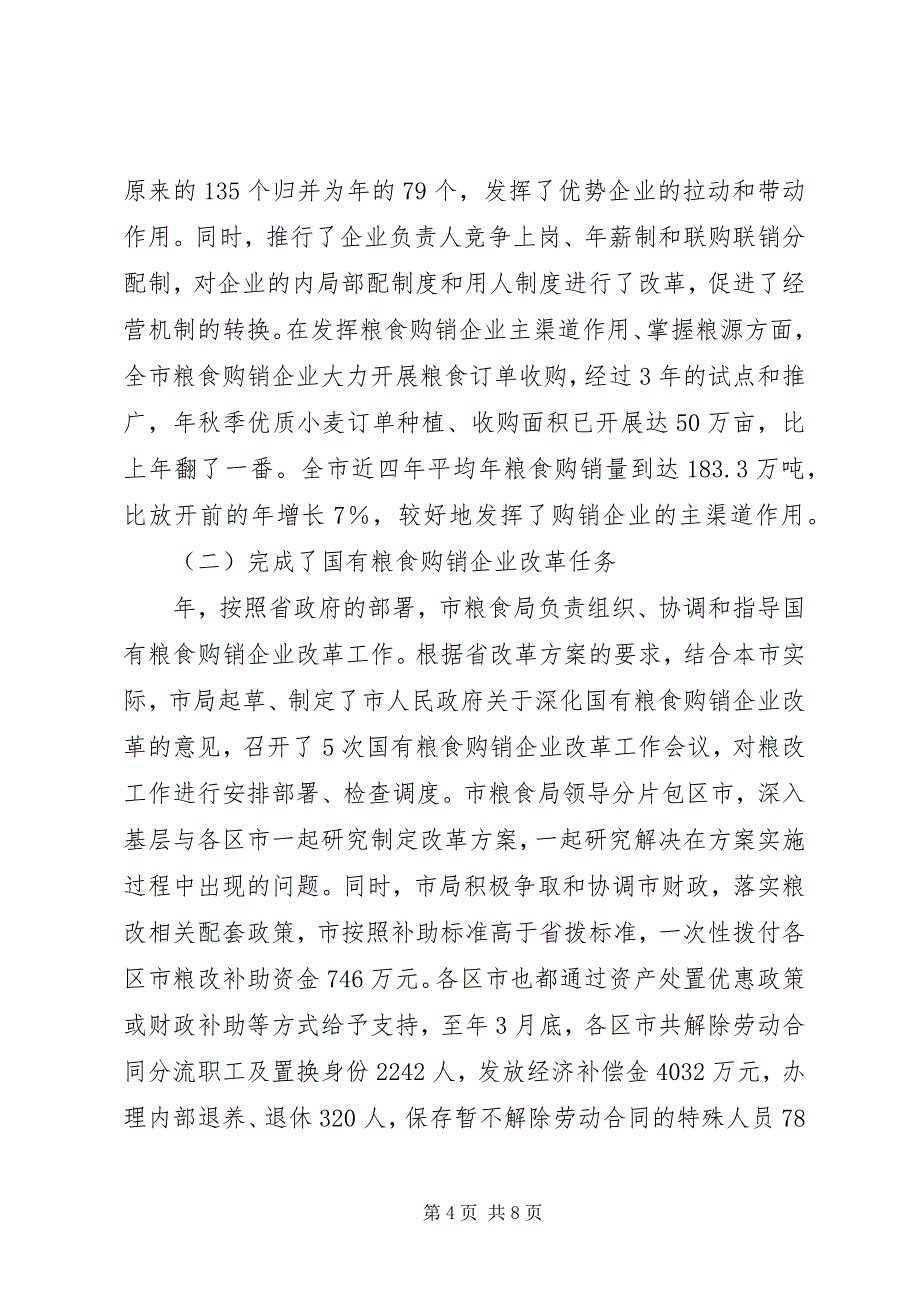 原来的 135 个归并为年的 79 个，发挥了优势企业的拉动和带动
作用。同时，推行了企业负责人竞争上岗、年薪制和联购联销分
配制，对企业的内局部配制度和用人制度进行了改革，促进了经
营机制的转换。在发挥粮食购销企业主渠道作用、掌握粮源方面，
全市粮食购销企业大力开展粮食订单收购，经过 3 年的试点和推
广，年秋季优质小麦订单种植、收购面积已开展达 50 万亩，比
上年翻了一番。全市近四年平均年粮食购销量到达 183.3 万吨，
比放开前的年增长 7%，较好地发挥了购销企业的主渠道作用。
（二）完成了国有粮食购销企业改革任务
年，按照省政府的部署，市粮食局负责组织、协调和指导国
有粮食购销企业改革工作。根据省改革方案的要求，结合本市实
际，市局起草、制定了市人民政府关于深化国有粮食购销企业改
革的意见，召开了 5 次国有粮食购销企业改革工作会议，对粮改
工作进行安排部署、检查调度。市粮食局领导分片包区市，深入
基层与各区市一起研究制定改革方案，一起研究解决在方案实施
过程中出现的问题。同时，市局积极争取和协调市财政，落实粮
改相关配套政策，市按照补助标准高于省拨标准，一次性拨付各
区市粮改补助资金 746 万元。各区市也都通过资产处置优惠政策
或财政补助等方式给予支持，至年 3 月底，各区市共解除劳动合
同分流职工及置换身份 2242 人，发放经济补偿金 4032 万元，办
理内部退养、退休 320 人，保存暂不解除劳动合同的特殊人员 78
第 4 页 共 8 页